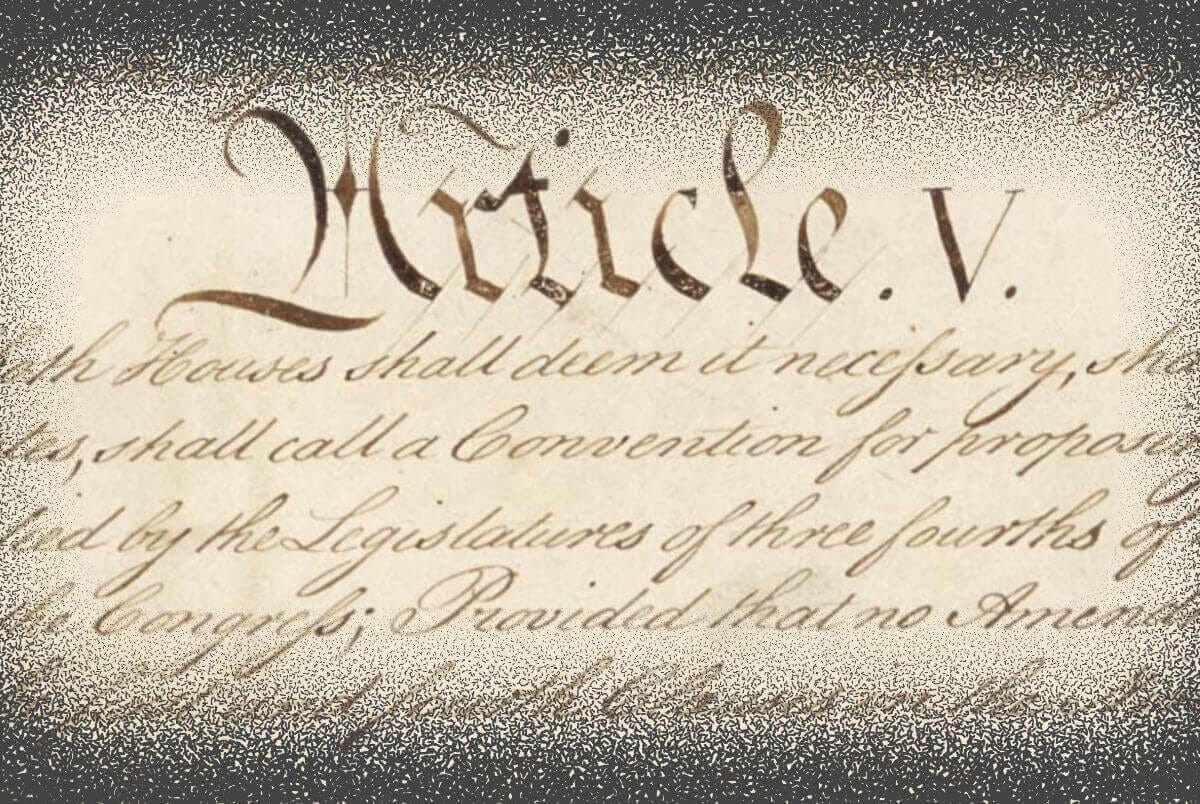 Article. V.
Houses shall deem it necessary, sha
shall call a Convention for proposin
by the Legislatures of three fourths of
Congress; Provided that no Amend
fourth Clauses in the